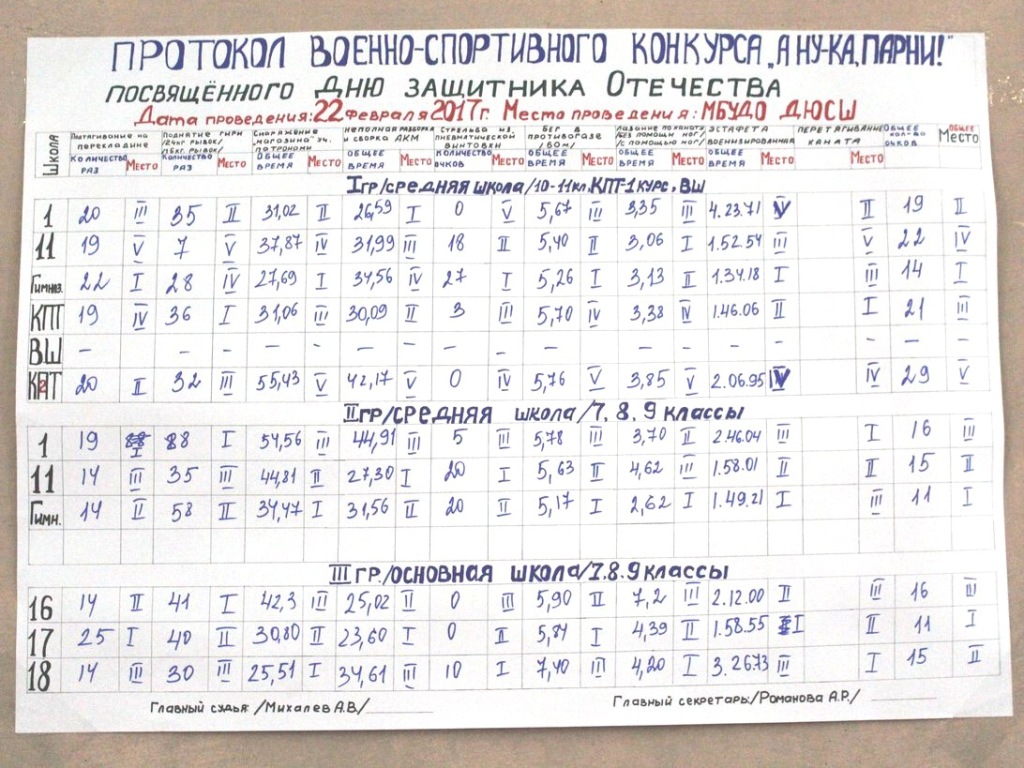 ПРОТОКОЛ ВОЕННО-СПОРТИВНОГО КОНКУРСА „А НУ-КА, ПАРНИ!"
ПОСВЯЩЁННОГО ДНЮ ЗАЩИТНИКА ОТЕЧЕСТВА
Дата проведения: 22 февраля 2017г. Место проведения: МБУДО ДЮСШ
ШКОЛА Подтягивание на перекладине Поднятие гири /24кг рывок/ /16кг. рывок/ Снаряжение „магазина" уч. патронами Неполная разборка и сборка АКМ Стрельба из пневматической винтовки Бег в противогазе /60м/ Лазание по канату /без помощи ног/ /с помощью ног/ Эстафета военизированная Перетягивание каната Общее кол-во очков Общее Место
Количество раз Место Количество раз Место Общее время Место Общее время Место Количество очков Место Общее время Место Общее время Место Общее время Место Место
I гр/средняя школа/10-11кл. КПТ-1 курс, ВШ
1 20 III 35 II 31,02 II 26,59 I 0 V 5,67 III 3,35 III 4.23.71 V II 19 II
11 19 V 7 V 37,87 IV 31,99 III 18 II 5,40 II 3,06 I 1.52.54 III V 22 IV
Гимназ. 22 I 28 IV 27,69 I 34,56 IV 27 I 5,26 I 3,13 II 1.34.18 I III 14 I
КПТ 19 IV 36 I 31,06 III 30,09 II 3 III 5,70 IV 3,38 IV 1.46.06 II I 21 III
ВШ – – – – – – – – – – – – – – – – – –
КПТ 20 II 32 III 55,43 V 42,17 V 0 IV 5,76 V 3,85 V 2.06.95 IV IV 29 V
II гр/средняя школа/7. 8. 9 классы
1 19 I 88 I 54,56 III 44,91 III 5 III 5,78 III 3,70 II 2.46.04 III I 16 III
11 14 III 35 III 44,81 II 27,30 I 20 I 5,63 II 4,62 III 1.58.01 II II 15 II
Гимн. 14 II 58 II 34,47 I 31,56 II 20 II 5,17 I 2,62 I 1.49.21 I III 11 I
III гр./основная школа/7.8.9 классы
16 14 II 41 I 42,3 III 25,02 II 0 III 5,90 II 7,2 III 2.12.00 II III 16 III
17 25 I 40 II 30,80 II 23,60 I 0 II 5,84 I 4,39 II 1.58.55 I II 11 I
18 14 III 30 III 25,51 I 34,61 III 10 I 7,40 III 4,20 I 3.26.73 III I 15 II
Главный судья: /Михалев А.В/ Главный секретарь: /Романова А.Р./